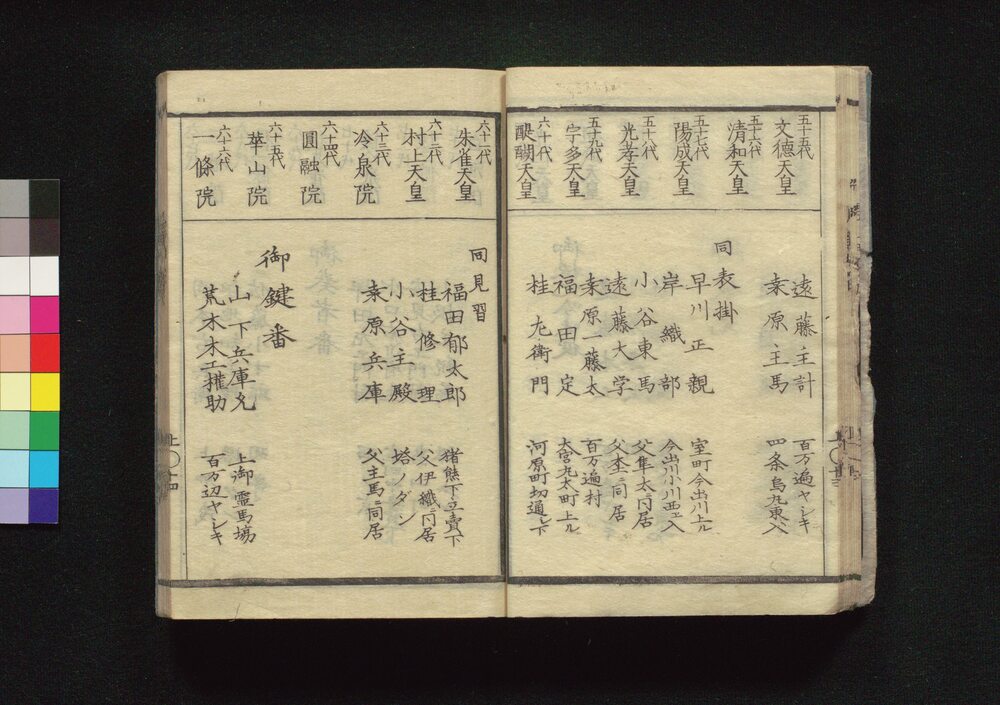 五十五代
文德天皇
五十六代
清和天皇
五十七代
陽成天皇
五十八代
光孝天皇
五十九代
宇多天皇
六十代
醍醐天皇
遠藤主計 百万遍ヤシキ
桒原主馬 四条烏丸東ヘ入
同表掛
早川正親 室町今出川上ル
岸織部 今出川小川西ヘ入
小谷東馬 父隼太同居
遠藤大学 父主計同居
桒原一藤太 百万遍村
福田定 大宮丸太町上ル
桂左衛門 河原町切通シ下
六十一代
朱雀天皇
六十二代
村上天皇
六十三代
冷泉院
六十四代
圓融院
六十五代
華山院
六十六代
一條院
同見習
福田郁太郎 猪熊下立賣下
桂修理 父伊織同居
小谷主殿 塔ノダン
桒原兵庫 父主馬同居
御鍵番
山下兵庫允 上御霊馬場
荒木木工權助 百万辺ヤシキ
上〇十四